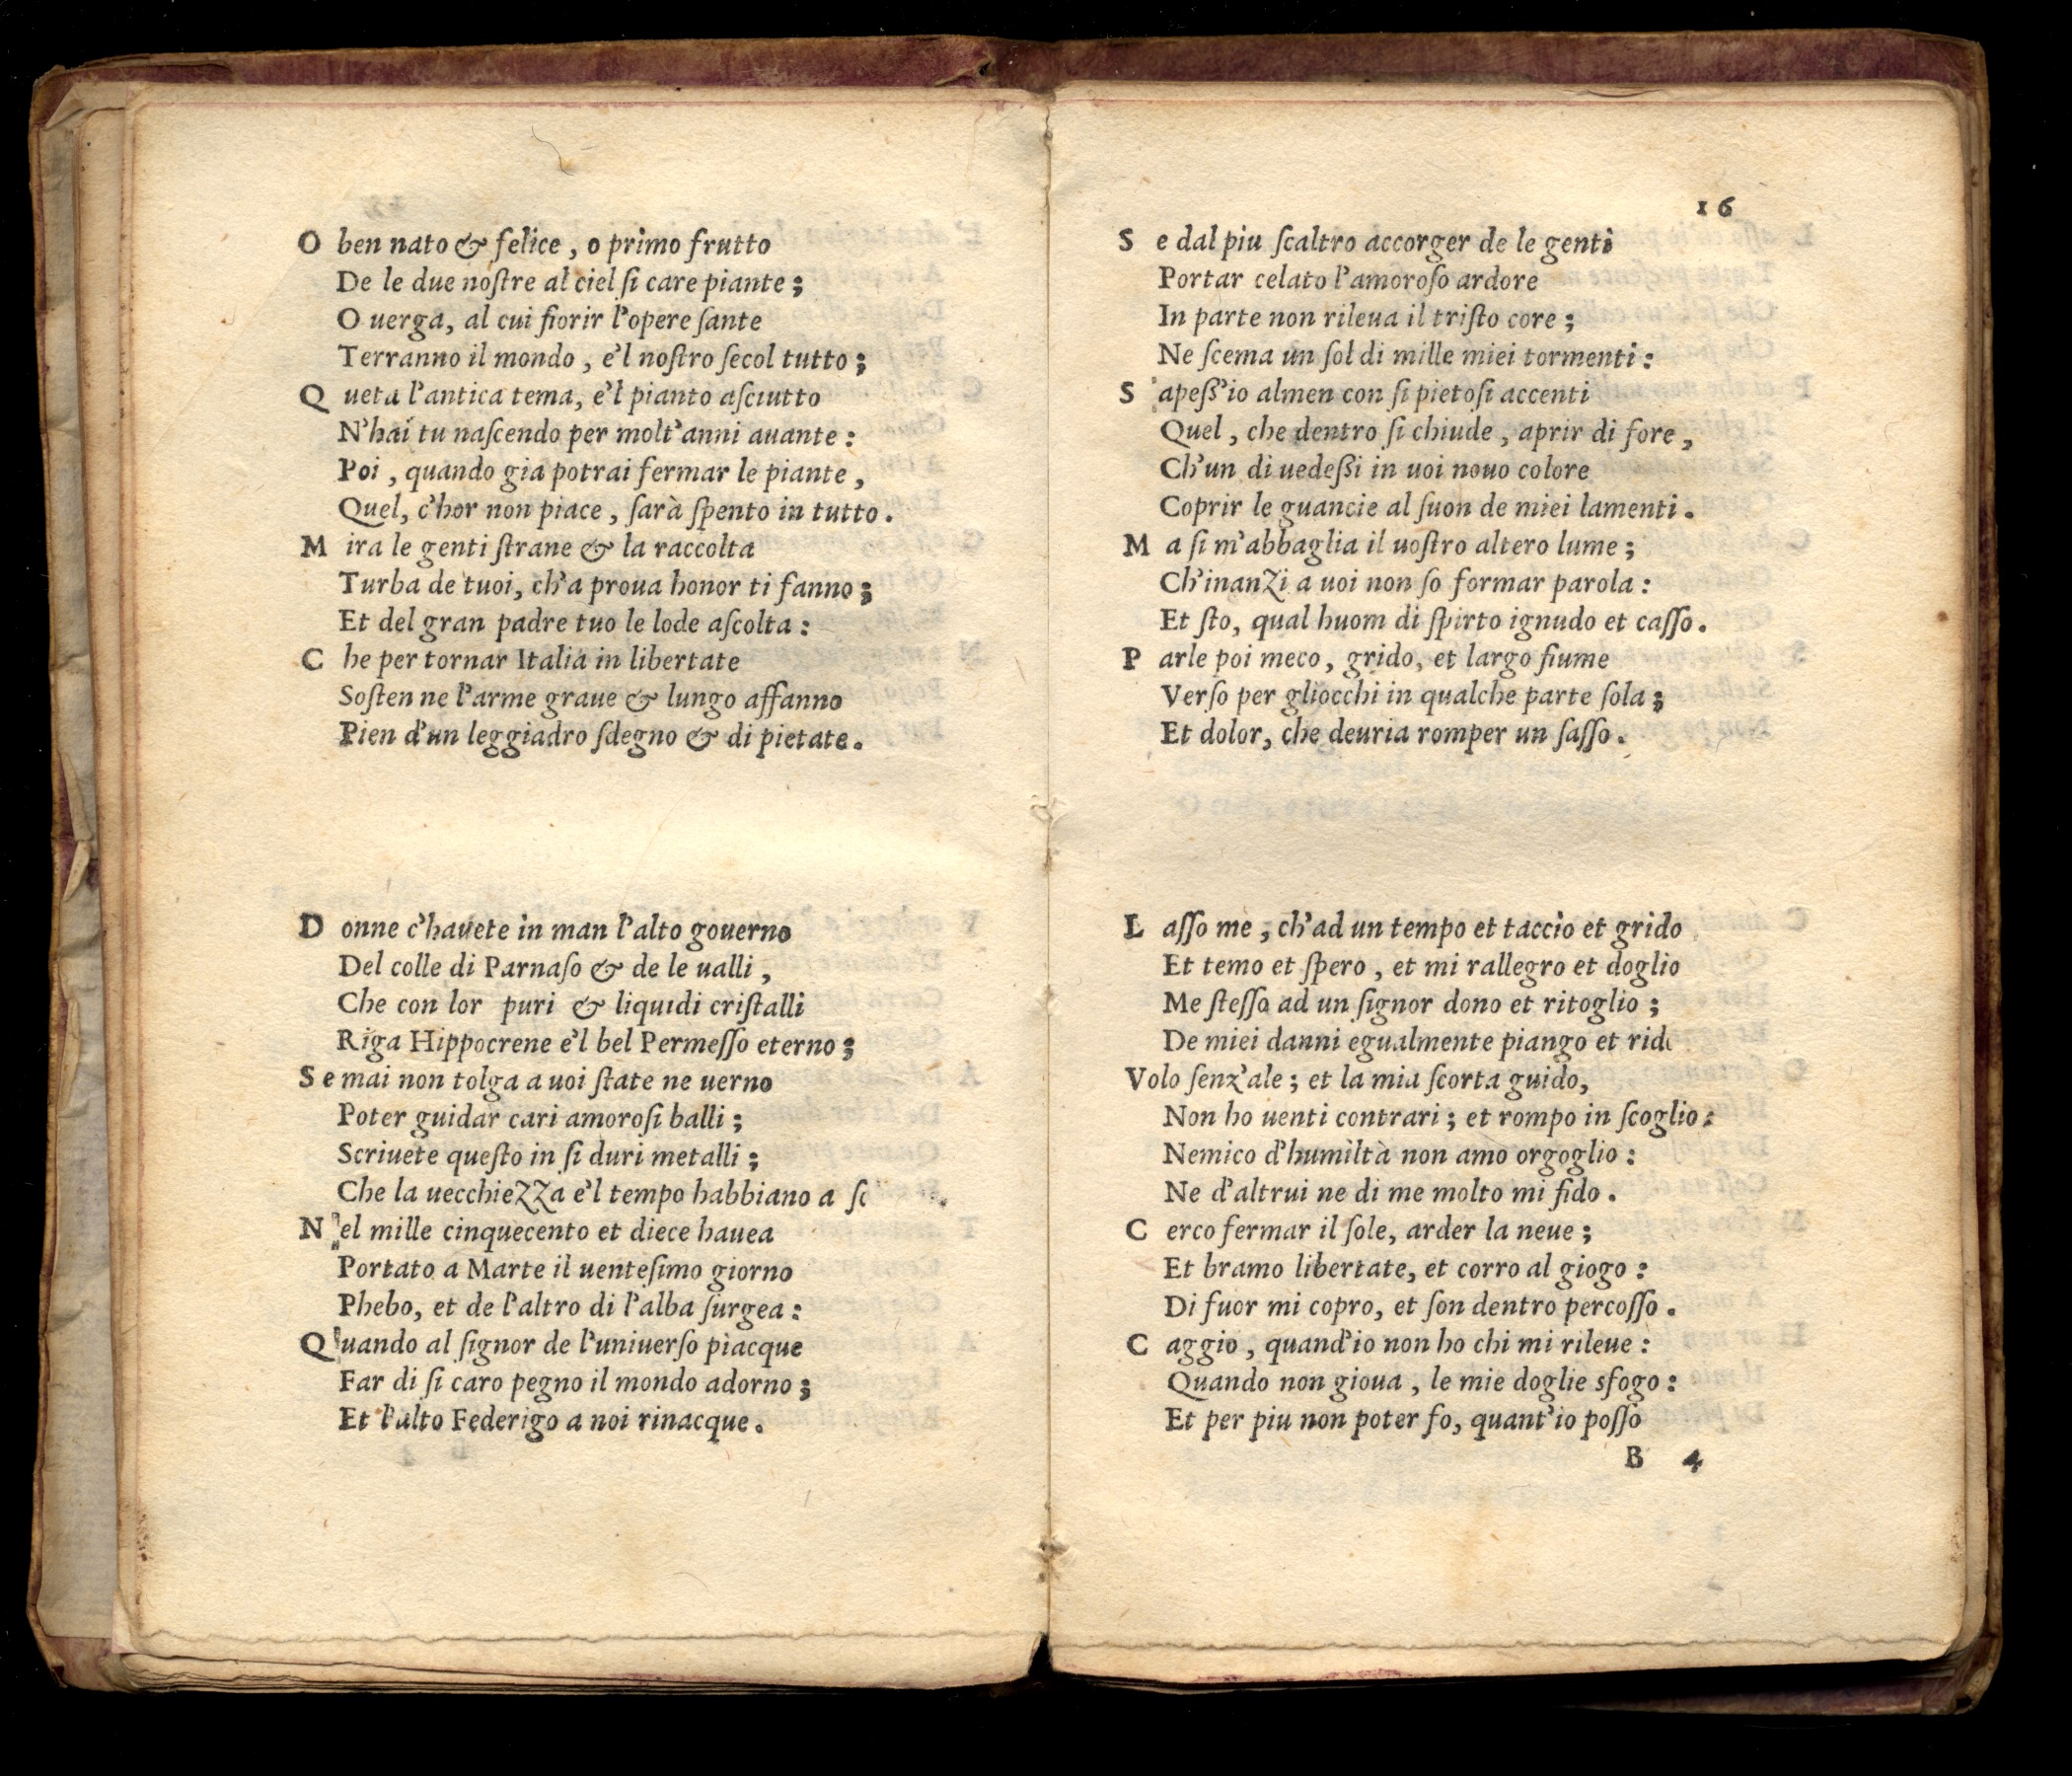 O ben nato & felice, o primo frutto
De le due noſtre al ciel ſi care piante;
O uerga, al cui fiorir l'opere ſante
Terranno il mondo, e'l noſtro ſecol tutto;
Queta l'antica tema, e'l pianto aſciutto
N'hai tu naſcendo per molt'anni auante:
Poi, quando gia potrai fermar le piante,
Quel, c'hor non piace, ſarà ſpento in tutto.
Mira le genti ſtrane & la raccolta
Turba de tuoi, ch'a proua honor ti fanno;
Et del gran padre tuo le lode aſcolta:
Che per tornar Italia in libertate
Soſten ne l'arme graue & lungo affanno
Pien d'un leggiadro ſdegno & di pietate.
Donne c'hauete in man l'alto gouerno
Del colle di Parnaſo & de le ualli,
Che con lor puri & liquidi criſtalli
Riga Hippocrene e'l bel Permeſſo eterno;
Se mai non tolga a uoi ſtate ne uerno
Poter guidar cari amoroſi balli;
Scriuete queſto in ſi duri metalli;
Che la uecchiezza e'l tempo habbiano a
Nel mille cinquecento et diece hauea
Portato a Marte il uenteſimo giorno
Phebo, et de l'altro di l'alba ſurgea:
Quando al ſignor de l'uniuerſo piacque
Far di ſi caro pegno il mondo adorno;
Et l'alto Federigo a noi rinacque.
16
Se dal piu ſcaltro accorger de le genti
Portar celato l'amoroſo ardore
In parte non rileua il triſto core;
Ne ſcema un ſol di mille miei tormenti:
Sapeſſ'io almen con ſi pietoſi accenti
Quel, che dentro ſi chiude, aprir di fore,
Ch'un di uedeſſi in uoi nouo colore
Coprir le guancie al ſuon de miei lamenti.
Ma ſi m'abbaglia il uoſtro altero lume;
Ch'inanzi a uoi non ſo formar parola:
Et ſto, qual huom di ſpirto ignudo et caſſo.
Parle poi meco, grido, et largo fiume
Verſo per gliocchi in qualche parte ſola;
Et dolor, che deuria romper un ſaſſo.
Laſſo me, ch'ad un tempo et taccio et grido
Et temo et ſpero, et mi rallegro et doglio
Me ſteſſo ad un ſignor dono et ritoglio;
De miei danni egualmente piango et rido
Volo ſenz'ale; et la mia ſcorta guido,
Non ho uenti contrari; et rompo in ſcoglio:
Nemico d'humiltà non amo orgoglio:
Ne d'altrui ne di me molto mi fido.
Cerco fermar il ſole, arder la neue;
Et bramo libertate, et corro al giogo:
Di fuor mi copro, et ſon dentro percoſſo.
Caggio, quand'io non ho chi mi rileue:
Quando non gioua, le mie doglie sfogo:
Et per piu non poter fo, quant'io poſſo
B 4